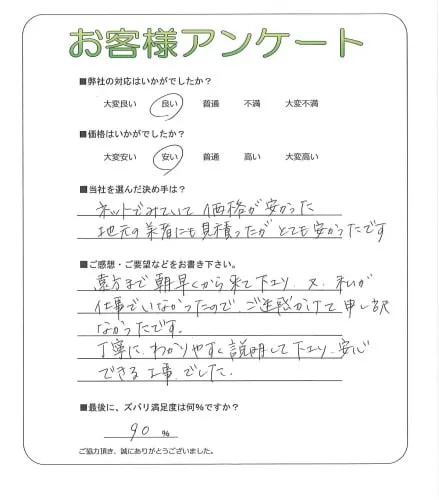 お客様アンケート
■弊社の対応はいかがでしたか？
大変良い 良い 普通 不満 大変不満
■価格はいかがでしたか？
大変安い 安い 普通 高い 大変高い
■当社を選んだ決め手は？
ネットでみていて 価格が安かった
地元の業者にも見積ったが とても安かったです
■ご感想・ご要望などをお書き下さい。
遠方まで 朝早くから来て下さり 又、私が
仕事でいなかったので、ご迷惑かけて申し訳
なかったです。
丁寧に、わかりやすく説明して下さり、安心
できる工事でした。
■最後に、ズバリ満足度は何%ですか？
90 %
ご協力頂き、誠にありがとうございました。